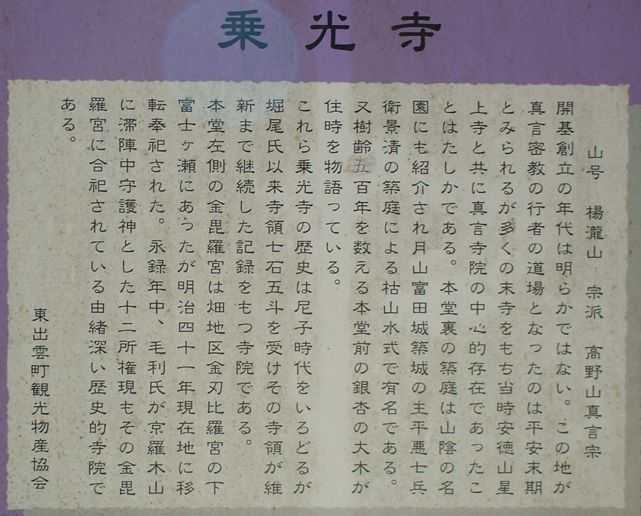 乗光寺
山号　楊瀧山　宗派　高野山真言宗
開基創立の年代は明らかではない。この地が
真言密教の行者の道場となったのは平安末期
とみられるが多くの末寺をもち当時安徳山星
上寺と共に真言寺院の中心的存在であったこ
とはたしかである。本堂裏の築庭は山陰の名
園にも紹介され月山富田城築城の主平悪七兵
衛景清の築庭による枯山水式で有名である。
又樹齢五百年を数える本堂前の銀杏の大木が
住時を物語っている。
これら乗光寺の歴史は尼子時代をいろどるが
堀尾氏以来寺領七石五斗を受けその寺領が維
新まで継続した記録をもつ寺院である。
本堂左側の金毘羅宮は畑地区金刃比羅宮の下
富士ヶ瀬にあったが明治四十一年現在地に移
転奉祀された。永録年中、毛利氏が京羅木山
に滞陣中守護神とした十二所権現もその金毘
羅宮に合祀されている由緒深い歴史的寺院で
ある。
東出雲町観光物産協会